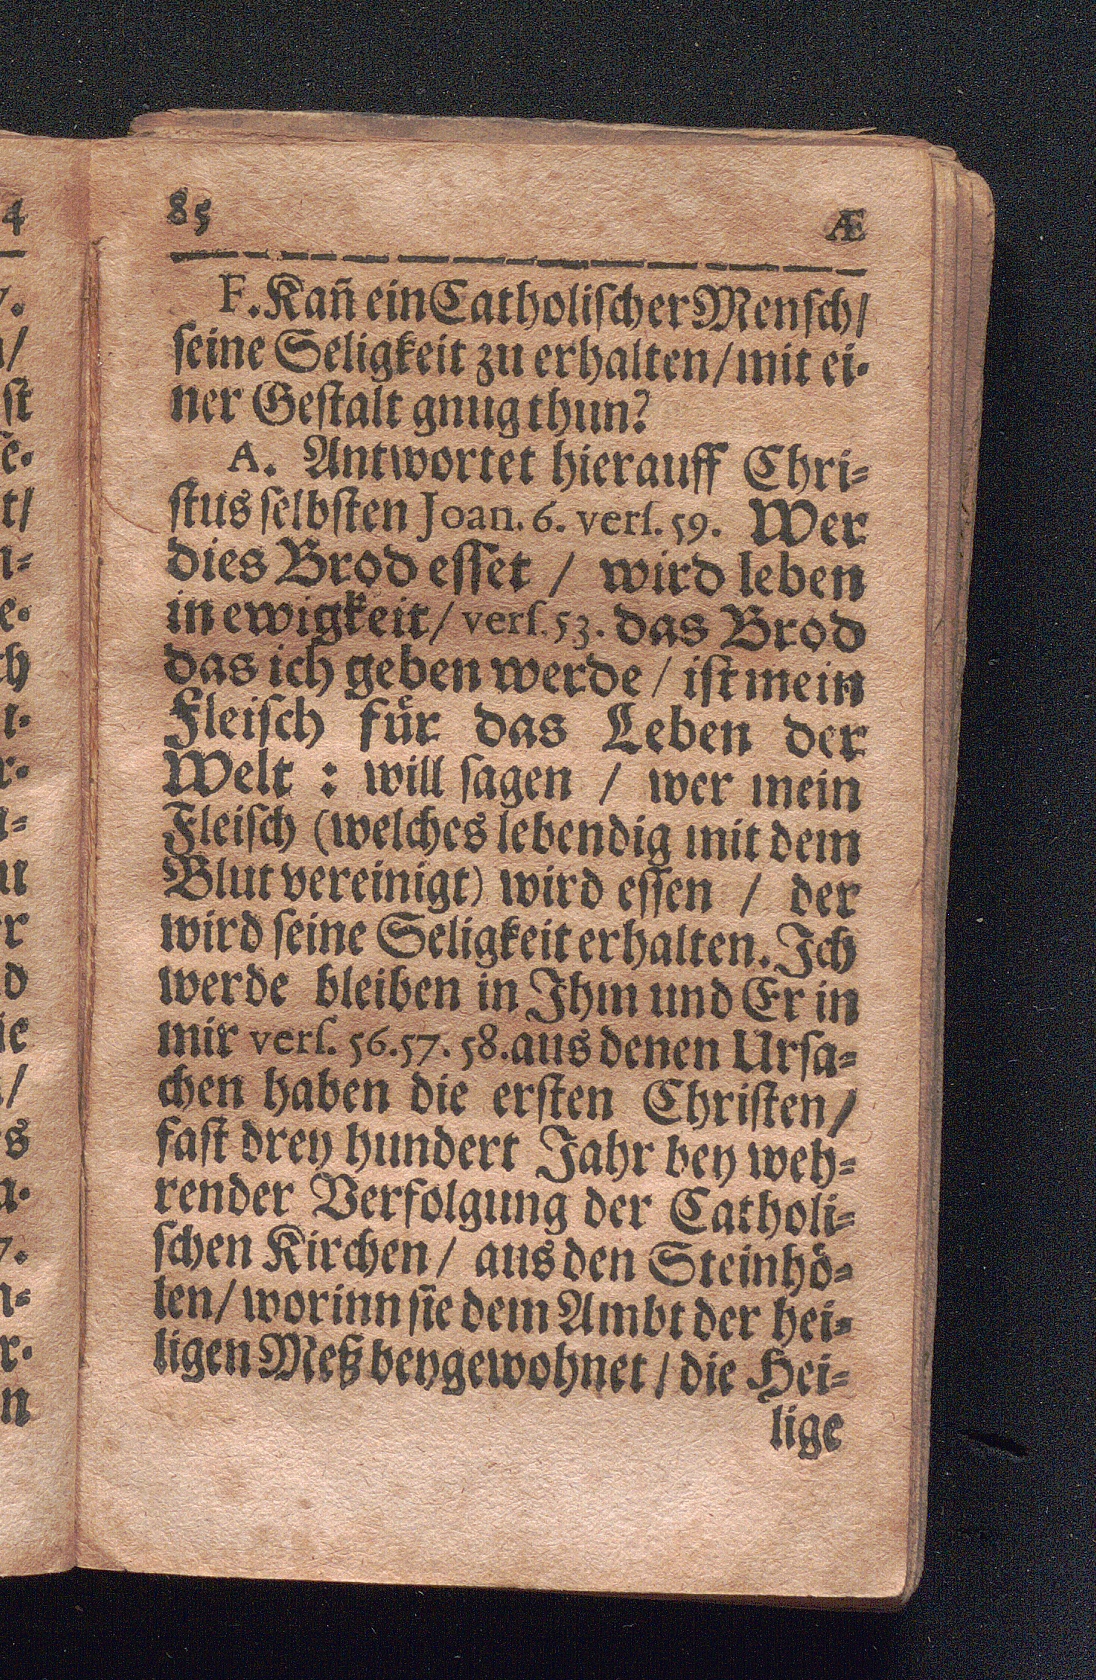 85 Æ
F. Kañ ein Catholischer Mensch/
seine Seligkeit zu erhalten/mit ei-
ner Gestalt gnug thun?
A. Antwortet hierauff Chri-
stus selbsten Joan. 6. vers. 59. Wer
dies Brod esset / wird leben
in ewigkeit/ vers. 53. das Brod
das ich geben werde / ist mein
Fleisch fůr das Leben der
Welt : will sagen / wer mein
Fleisch (welches lebendig mit dem
Blut vereinigt) wird essen / der
wird seine Seligkeit erhalten. Ich
werde bleiben in Ihm und Er in
mir vers. 56.57. 58. aus denen Ursa-
chen haben die ersten Christen/
fast drey hundert Jahr bey weh-
render Verfolgung der Catholi-
schen Kirchen/ aus den Steinhö-
len/ worinn sie dem Ambt der hei-
ligen Meß beygewohnet / die Hei-
lige